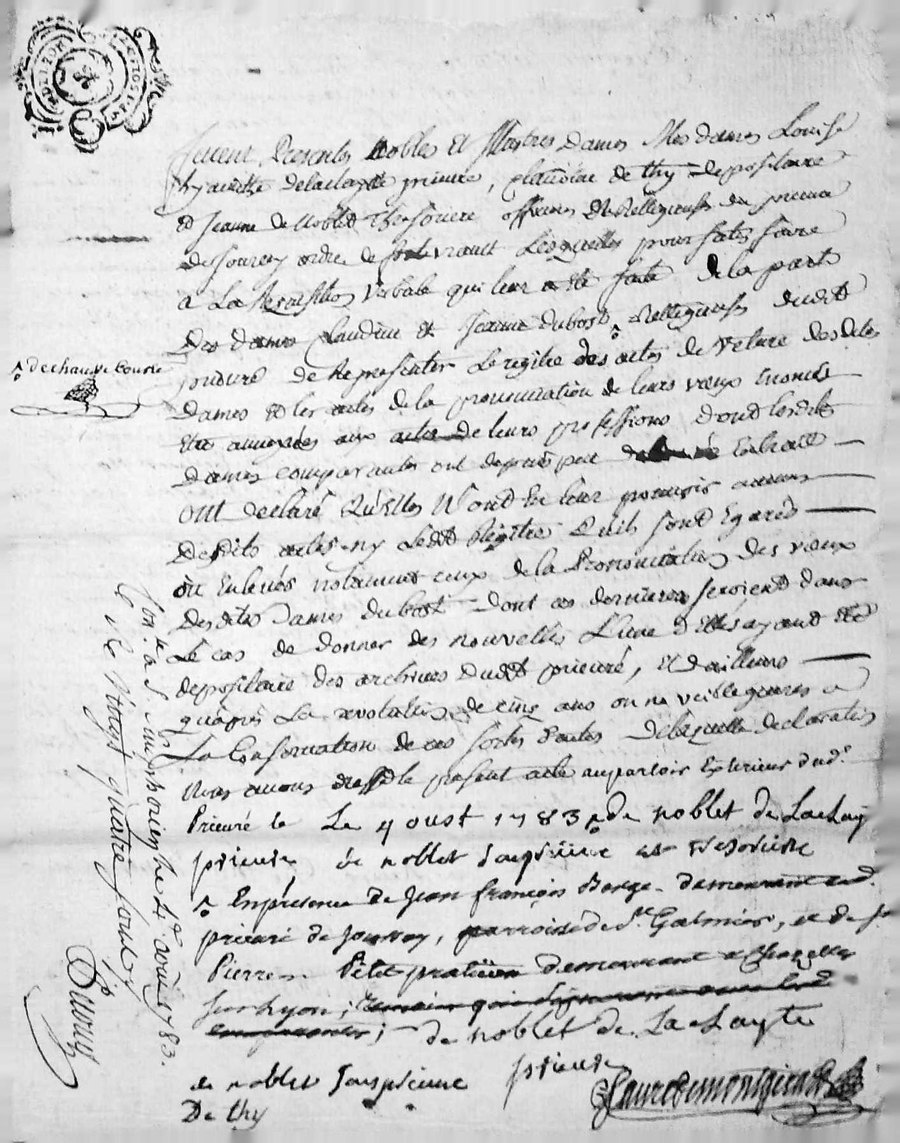 furent Presentes Nobles Et Illustres dames Mes dames Louise
hyacinthe delaclayette prieure, claudine de thy depositaire
Et Jeanne de Noblet Thesoriere officieres Et Relligieuses du prieuré
de Jourcey ordre de fontevrault Lesquelles pour satisfaire
a La Requisition Verbale qui leur a Eté faite de la part
des dames Claudine et Jeanne dubost Relligieuses dudit
prieuré de Representer Le registre des actes de Veture des dites
dames et les actes de la prononciation de leurs vœux Enoncés
Etre annexées aux actes de leurs professions dont lesdites
dames comparantes ont depuis peu Extrait
ont declaré Qu'Elles N'ont En leur pouvoir aucuns
desdits actes ny Ledit Registre Quils sont Egarés
ou Enlevés notamment ceux de la Prononciation des vœux
desdites dames dubost dont ces dernieres seroient dans
Le cas de donner des nouvelles L'une d'Elles ayant Eté
depositaire des archives dudit prieuré, Et dailleurs
quapres La revolution de cinq ans on ne veille gueres a
La Conservation de ces sortes d'actes de laquelle declaration
Nous avons dressé le present acte au parloir Exterieur dud.
Prieuré le Le 4 oust 1783 de noblet de Laclay
prieure de noblet souprieure et tresoriere
En presence de Jean françois Berge demeurant aud.
prieuré de Jourcey, parroisse de St Galmier, et de Sr
Pierre Petit praticien demeurant a Chazelles
sur Lyon;
de noblet de La clayte
prieure
de noblet souprieure
De thy
de chauve tourte
Con.lé a St Simphorien le 4 août 1783.
quatre sous